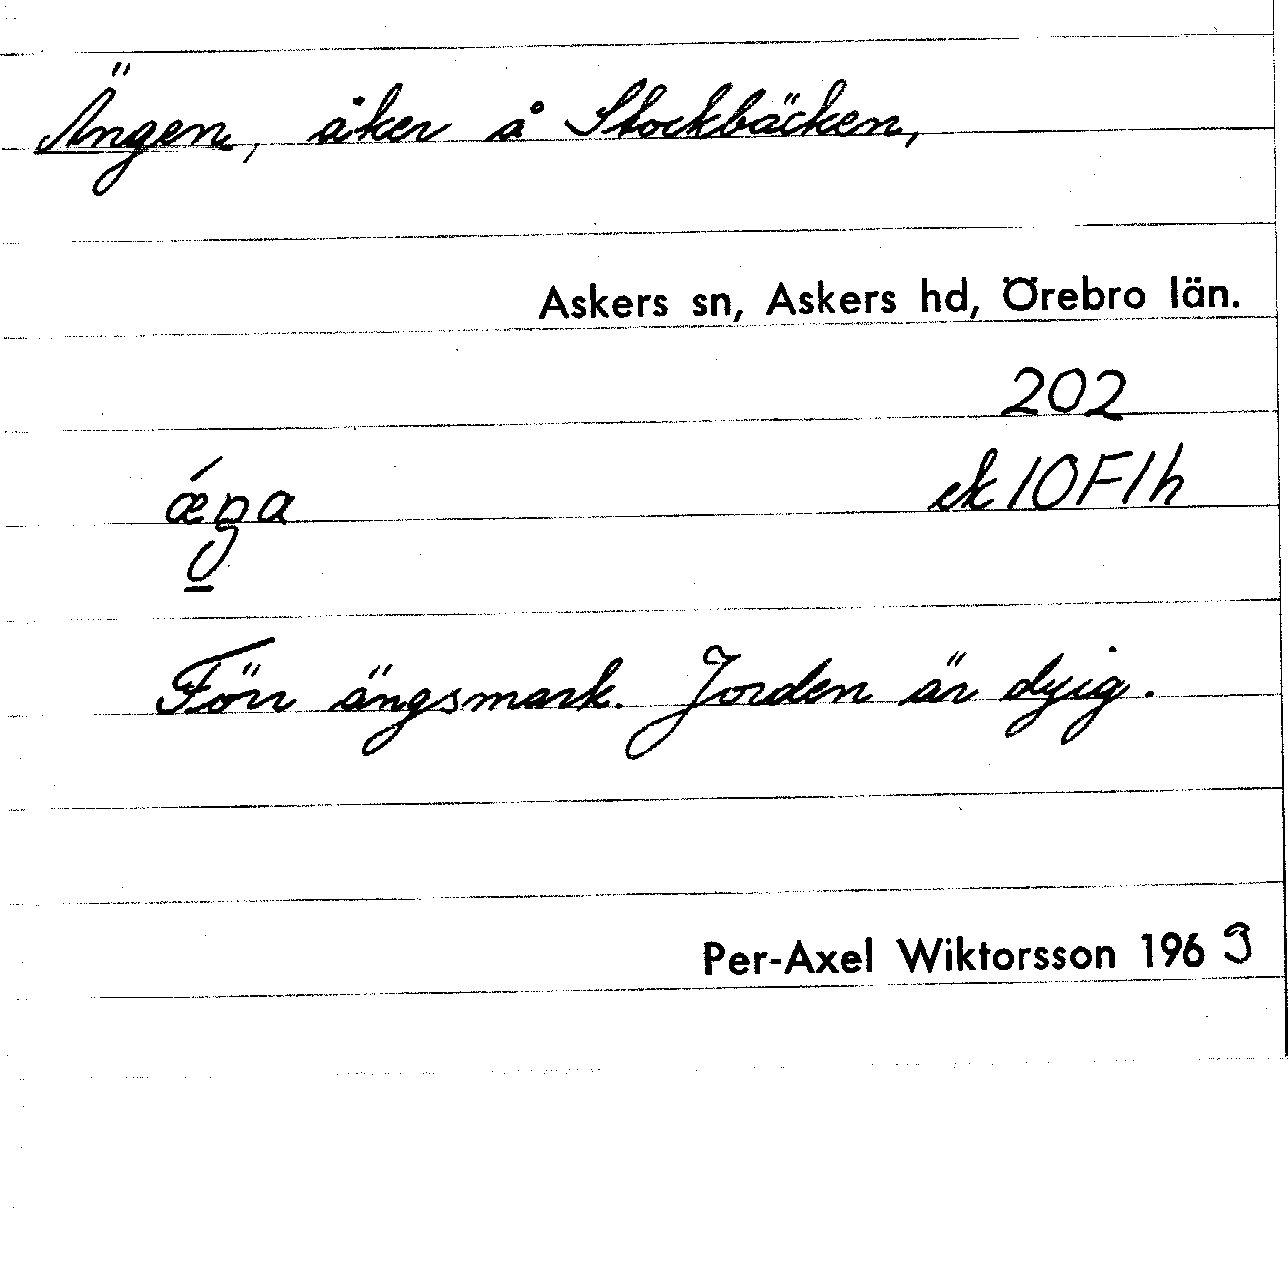 Ängen, åker å Stockbäcken,
Askers sn, Askers hd, Örebro län.
202
ek 10F1h
Förr ängsmark. Jorden är dyig.
Per-Axel Wiktorsson 1969